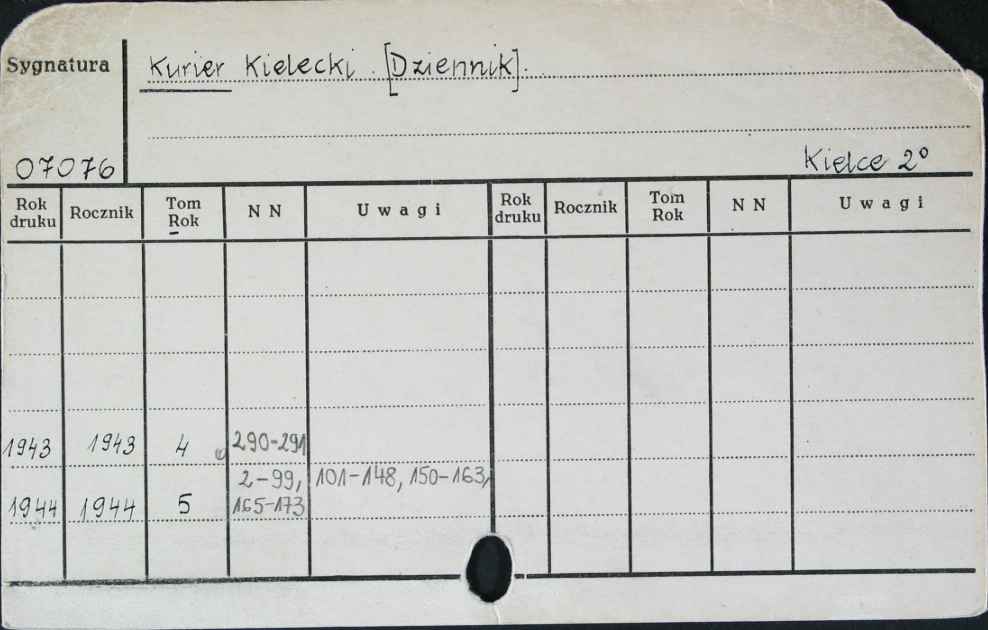 Sygnatura
Kurier Kielecki. [Dziennik].
07076
Kielce 2°
Rok druku Rocznik Tom Rok N N Uwagi Rok druku Rocznik Tom Rok N N Uwagi
1943 1943 4 290-291
2-99, 101-148, 150-163,
1944 1944 5 165-173